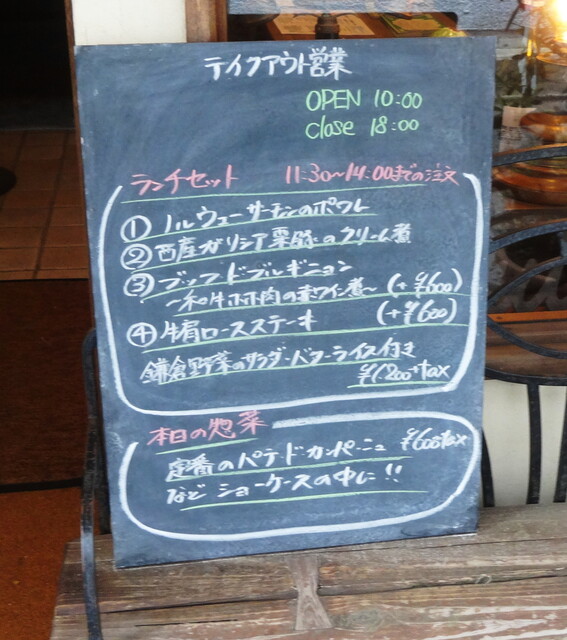 テイクアウト営業
OPEN 10:00
close 18:00
ランチセット 11:30〜14:00までの注文
① ノルウェーサーモンのポワレ
② 西産ガリシア栗豚のクリーム煮
③ ブッフ・ドブルギニョン
〜和牛ホホ肉の赤ワイン煮〜 (+¥600)
④ 牛肩ロースステーキ (+¥600)
鎌倉野菜のサラダ・バターライス付き
¥1200+tax
本日の惣菜
定番のパテ・ド・カンパーニュ ¥600+tax
など ショーケースの中に!!